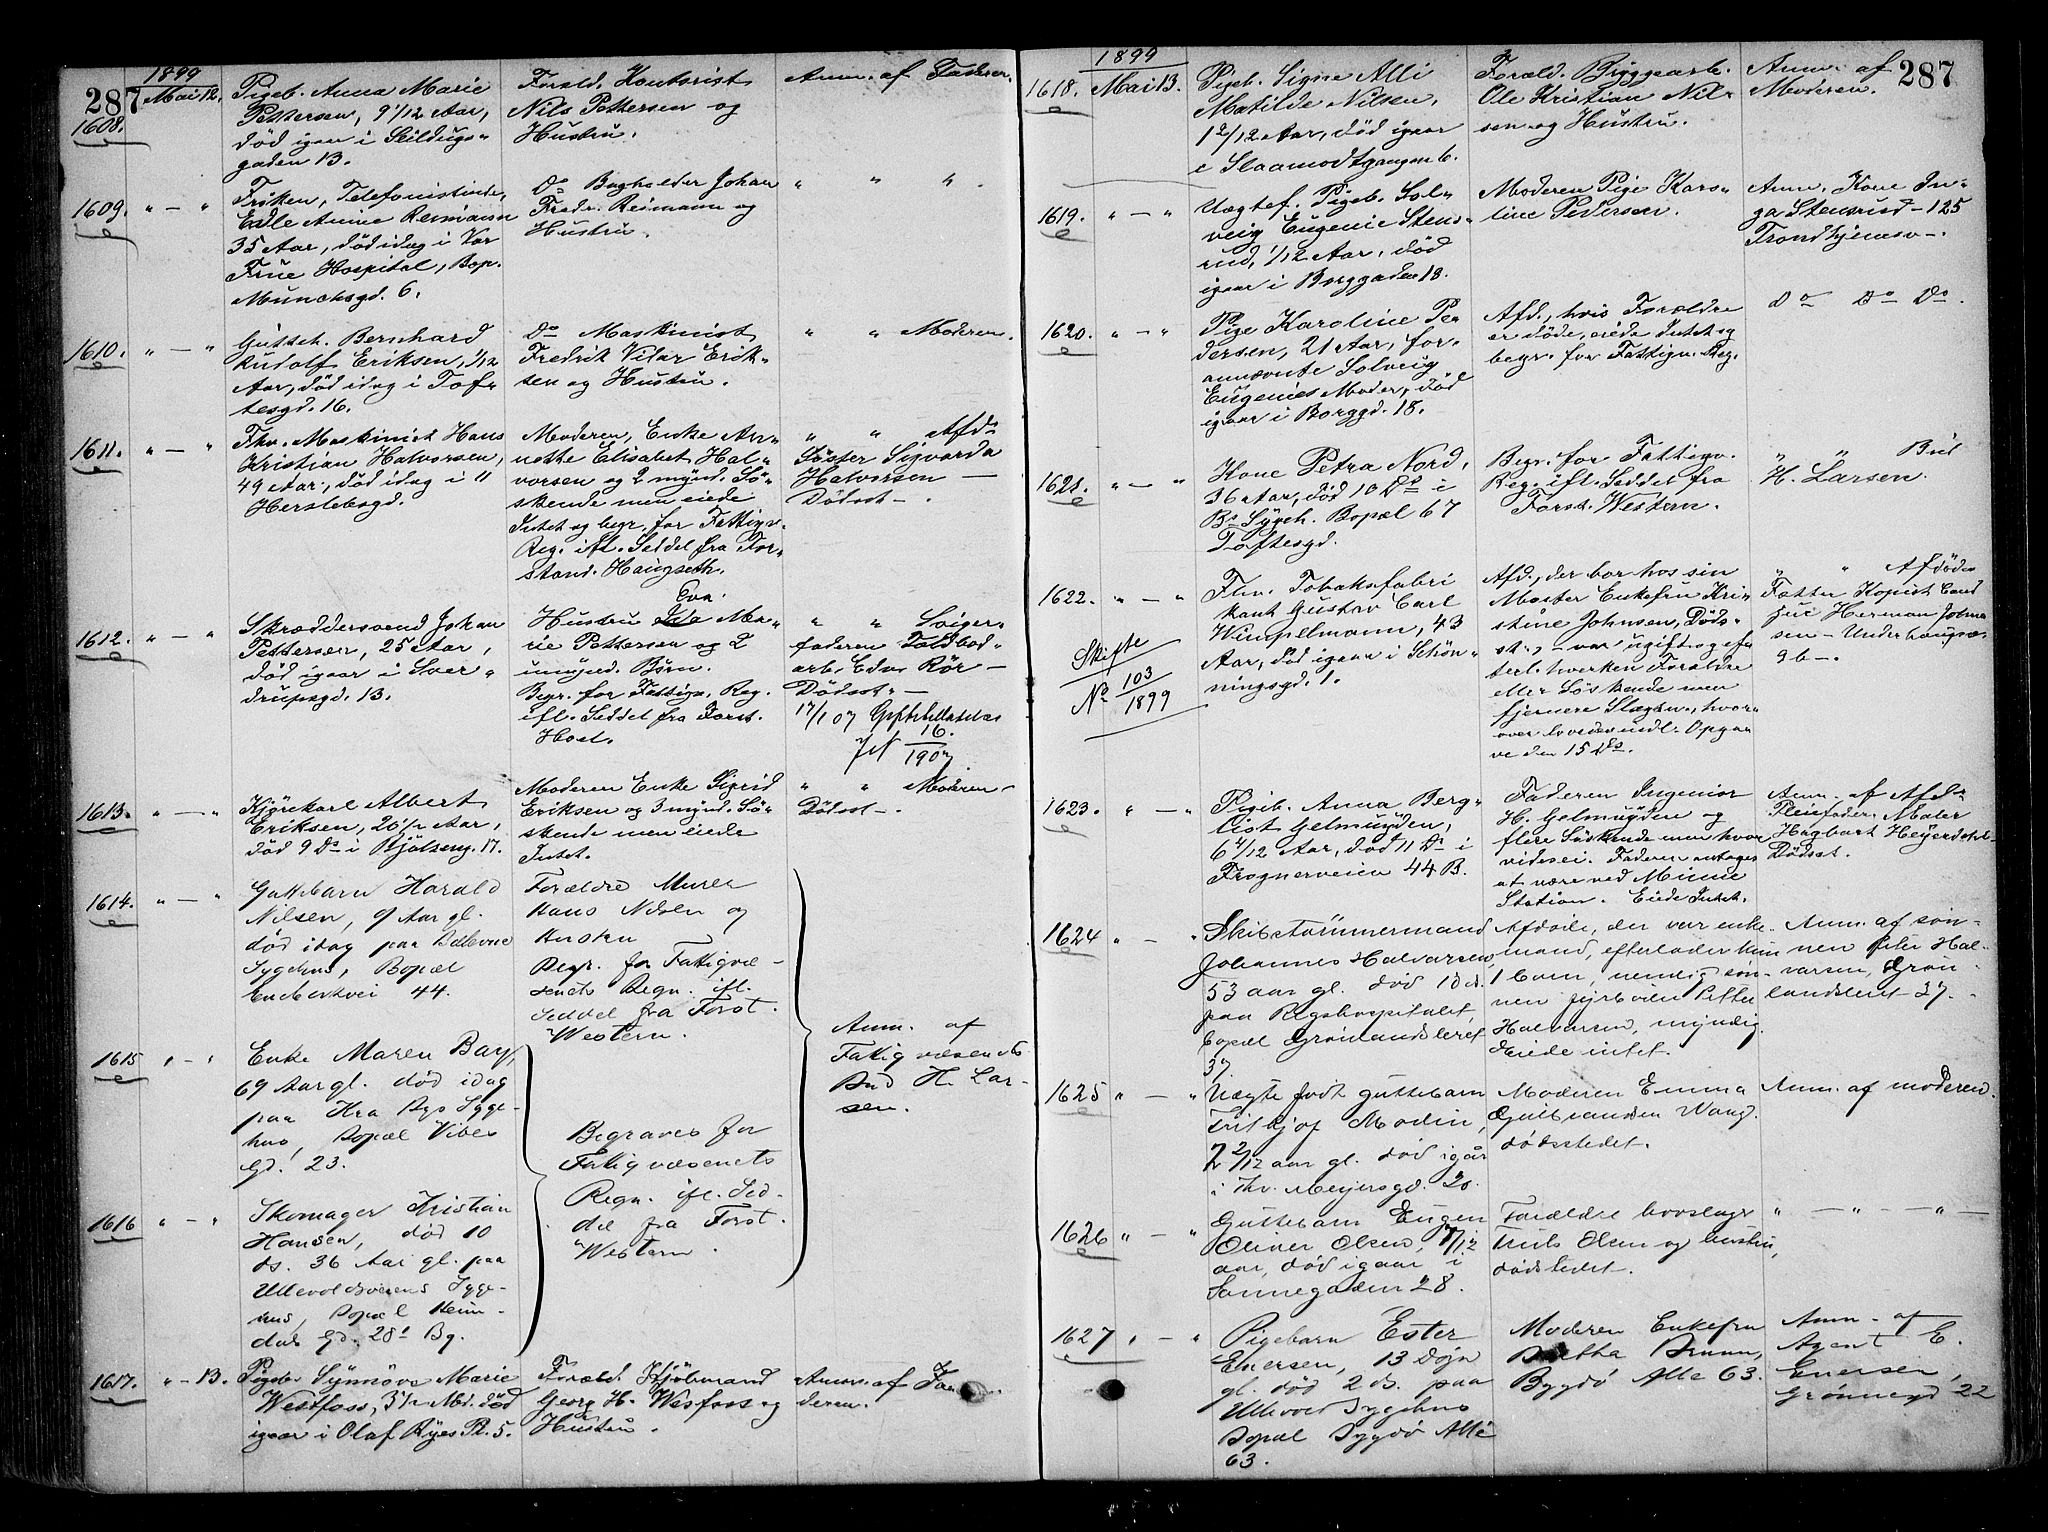 287
1899
Mai 12.
1608.
Pigeb. Anna Marie
Pettersen, 9 1/12 Aar,
død igaar i Seildugs-
gaden 13.
Foræld. Kontorist
Nils Pettersen og
Hustru.
Anm. af Faderen.
1609.
" — "
Frøken, Telefonistinde,
Edle Anine Reimann
35 Aar, død idag i Vor
Frue Hospital, Bop.
Munchsgd. 6.
Do Bogholder Johan
Fredr. Reimann og
Hustru.
" " "
1610.
" — "
Gutteb. Bernhard
Rudolf Eriksen, 1/12
Aar, død idag i Tof-
tesgd. 16.
Do Maskinist
Fredrik Vidar Erik-
sen og Hustru.
" " Moderen.
1611.
" — "
Fhv. Maskinist Hans
Kristian Halvorsen,
49 Aar, død idag i 11
Herslebsgd.
Moderen, Enke An-
nette Elisabet Hal-
vorsen og 2 mynd. Sø-
skende men eiede
Intet og begr. for Fattigv.
Reg. ifl. Seddel fra For-
stand. Haugseth.
" " Afds
Søster Sigvarda
Halvorsen —
Dødsst —.
1612.
" — "
Skræddersvend Johan
Pettersen, 25 Aar,
død igaar i Sver-
drupsgd. 13.
Eva.
Hustru Ida Ma-
rie Pettersen og 2
umynd. Børn.
Begr. for Fattigv. Reg.
ifl. Seddel fra Forst.
Hoel.
" " Sviger-
faderen Toldbod-
arb. Edv. Rör —
Dødsst. —
17/1 07
16.
1907.
1613.
" — "
Kjørekarl Albert
Eriksen, 26 1/2 Aar,
død 9 Ds i Bjölseng. 17.
Moderen Enke Sigrid
Eriksen og 3 mynd. Sø-
skende men eiede
Intet.
" " Moderen —
Dødsst —.
1614.
" — "
Guttebarn Harald
Nilsen, 9 Aar gl.
død idag paa Bellevue
Sygehus, Bopæl
Enebakvei 44.
Forældre Murer
Hans Nilsen og
Hustru
Begr. for Fattigvæ-
senets Regn. ifl.
Seddel fra Forst.
Western.
1615
" — "
Enke Maren Bay,
69 Aar gl. død idag
paa Kra Bys Syge-
hus, Bopæl Vibes
Gd. 23.
Begraves for
Fattigvæsenets
Regn. ifl. Sed-
del fra Forst.
Western.
Anm. af
Fattigvæsenets
Bud H. Lar-
sen.
1616
" — "
Skomager Kristian
Hansen, død 10
ds. 36 Aar gl. paa
Ullevoldsveiens Syge-
hus, Bopæl Heim-
dals Gd. 28 Bg.
1617.
" — 13.
Pigeb. Synnøve Marie
Westfoss, 3 1/2 Md. død
igaar i Olaf Ryes Pl. 5.
Foræld. Kjöbmand
Georg H. Westfoss og
Hustru.
Anm. af Fa
deren.
287
1899
1618.
Mai 13.
Pigeb. Signe Alli
Matilde Nilsen,
1 2/12 Aar, død igaar
i Slaamotgangen 6.
Foræld. Byggearb.
Ole Kristian Nil-
sen og Hustru.
Anm. af
Moderen.
1619.
" — "
Uægtef. Pigeb. Sol-
veig Eugenie Stens-
rud, 1/12 Aar, død
igaar i Borggaden 18.
Moderen Pige Karo-
line Pedersen.
Anm. Kone In-
ga Stensrud — 125
Trondhjemsv —.
1620.
" — "
Pige Karoline Pe-
dersen, 21 Aar, for-
annævnte Solveig
Eugenies Moder, død
igaar i Borggd. 18.
Afd., hvis Forældre
er døde, eiede Intet og
begr. for Fattigv. Reg.
Do Do Do.
1621.
" — "
Kone Petra Nord,
36 Aar, død 10 Ds i
Bs Sygeh. Bopæl 67
Toftesgd.
Begr. for Fattigv.
Reg. ifl. Seddel fra
Forst. Western.
" " Bud
H. Larsen.
1622.
" — "
Skifte
No 103
1899
Fhv. Tobaksfabri
kant Gustav Carl
Wimpelmann, 43
Aar, død igaar i Schøn-
ningsgd. 1.
Afd., der bor hos sin
Moster Enkefru Kri-
stine Johnsen, Døds-
st., — var ugift og ef-
terl. hverken Forældre
eller Søskende men
fjernere Slægtn., hvor-
over lovedes indl. Opga-
ve den 15 Ds.
" " Afdødes
Fætter Kopist Cand
jur Herman Johnsen
sen — Underhaugsv.
9b —.
1623.
" — "
Pigeb. Anna Berg-
liot Gelmuyden,
6 4/12 Aar, død 11 Ds i
Frognerveien 44 B.
Faderen Ingeniør
H. Gelmuyden og
flere Søskende men hvor
vides ei. Faderen antages
at være ved Minne
Station. Eiede Intet.
Anm. af Afds
Pleiefader Maler
Hagbart Heyerdahl —
Dødsst.
1624
" — "
Skibstømmermand
Johannes Halvorsen,
53 aar gl. død 10 ds.
paa Rigshospitalet,
bopæl Grønlandsleret
37.
Afdøde, der var enke-
mand, efterlader kun
1 barn, nemlig søn-
nen fyrbøder Petter
Halvarsen, myndig.
Eiede intet.
Anm. af søn-
nen Peter Hal-
varsen, Grøn-
landsleret 37.
1625
" — "
Uægte født guttebarn
Fritjof Modin,
2 2/12 aar gl. død igår
i Thv. Meyersgd. 20.
Moderen Emma
Gulbrandsen Wang.
dødsstedet.
Anm. af moderen.
1626
" — "
Guttebarn Eugen
Oliver Olsen, 7/12
aar, død igaar i
Sannergaden 28.
Forældre hovslager
Truls Olsen og hustru,
dødsstedet.
" — " — " —
1627
" — "
Pigebarn Ester
Enersen, 13 Døgn
gl. død 2 ds. paa
Ullevold Sygehus
Bopæl Bygdø Allé
63.
Moderen Enkefru
Bertha Bruun,
Bygdø Alle 63.
Anm. af
Agent E.
Enersen,
Grønnegd 22